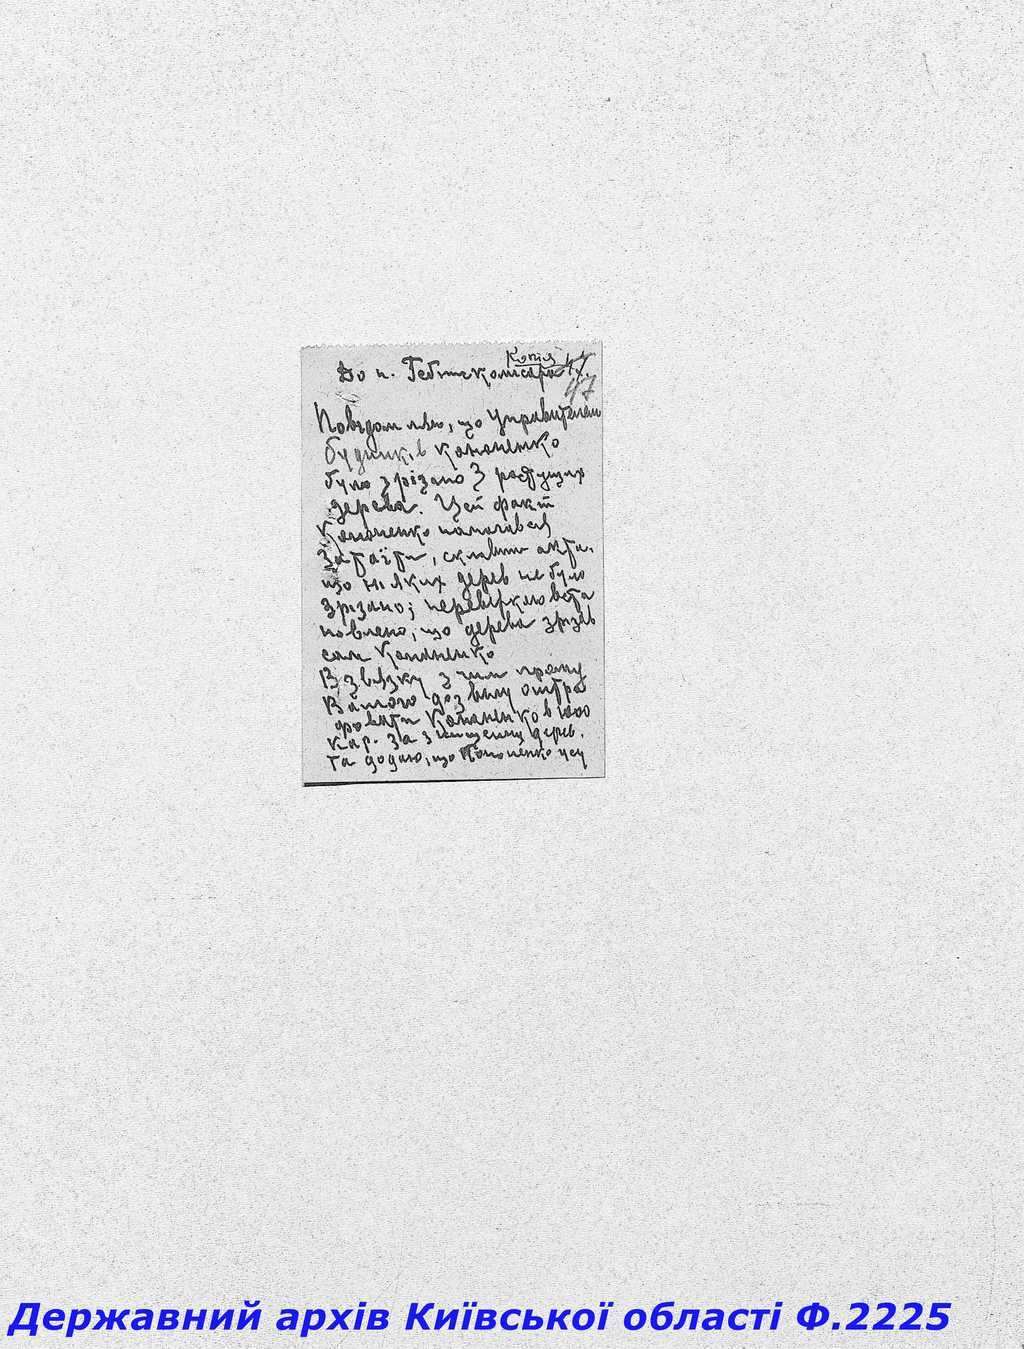 Копія
До п. Гебітскомісара 47.
47
Повідомляю, що Управителем
будинків Кононенко
було зрізано 3 ростущих
дерева. Цей факт
Кононенко намагався
затаїти, склавши акти,
що ніяких дерев не було
зрізано; перевіркою вста
новлено, що дерева зрізав
сам Кононенко
В звязку з чим прошу
Вашого дозвілу оштра
фовати Кононенко в 1000
кар. за знищення дерев.
Та додаю, що Кононенко
Державний архів Київської області Ф.2225